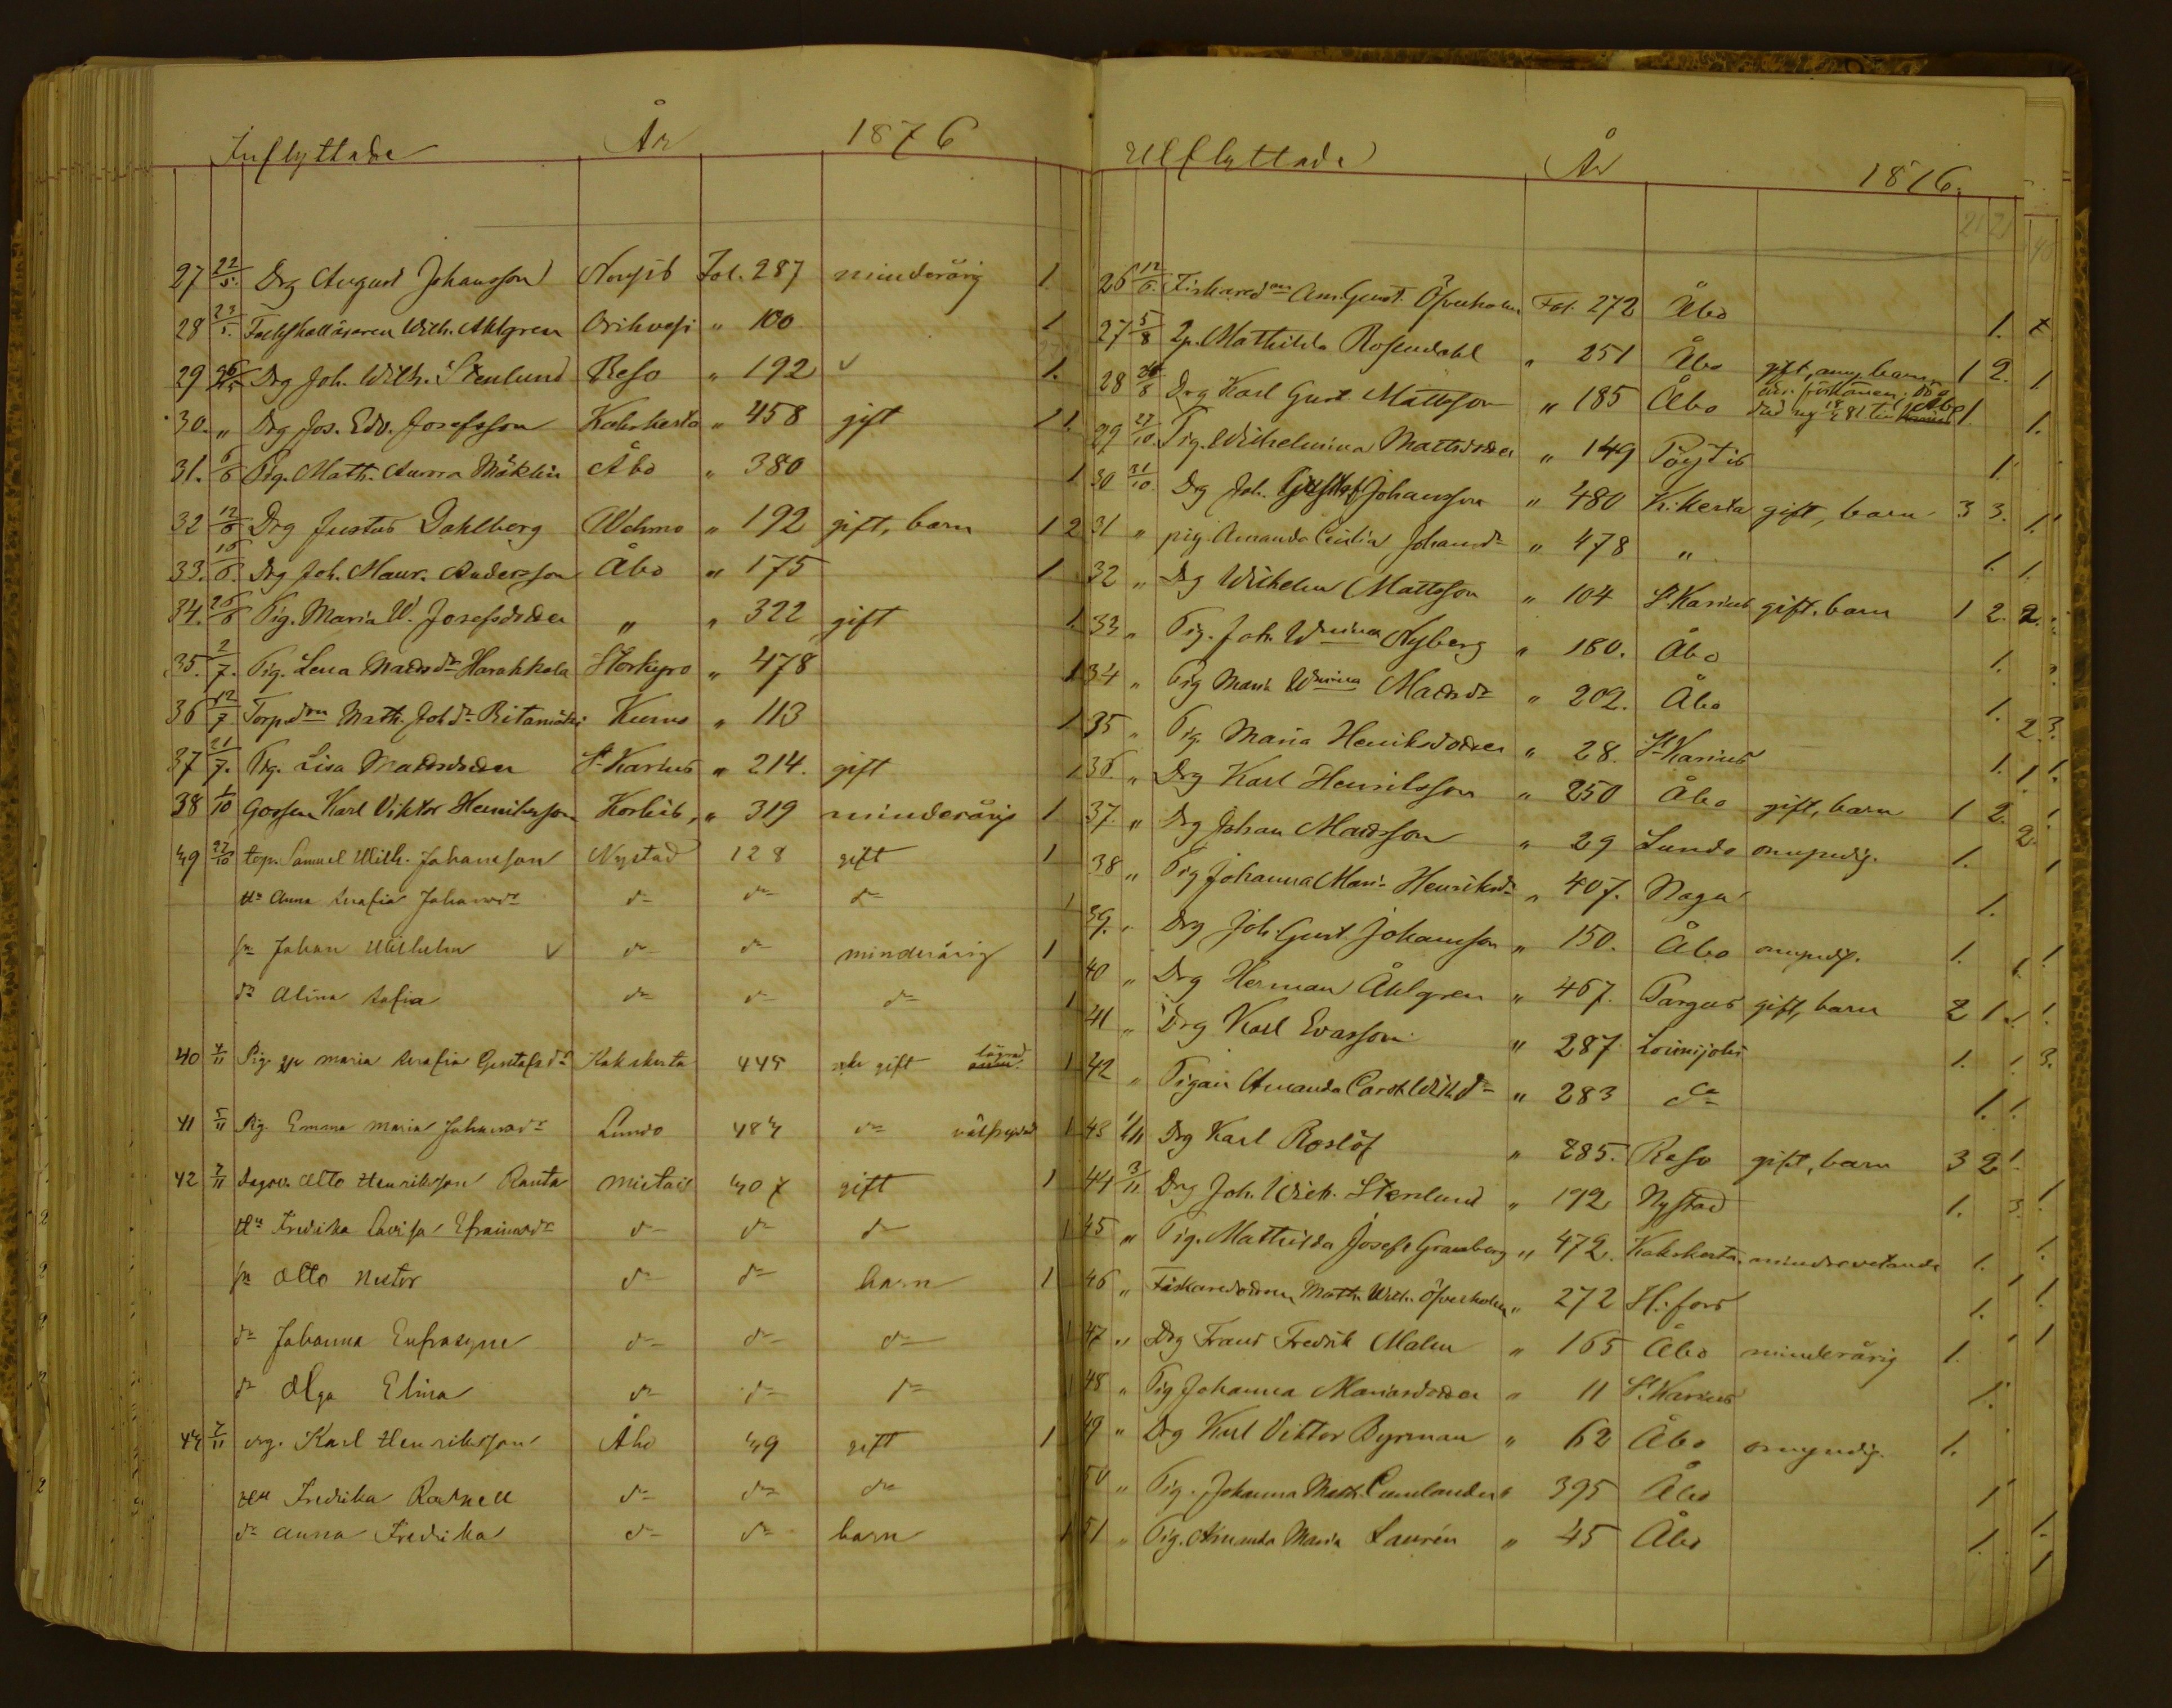 Inflyttade År 1876
27 22/5. Drg August Johansson Fol. 287 minderårig 1.
28 23/5. Wilh. Ahlgren Orihvesi " 100 1
29 26/5 Drg Joh. Wilh. Stenlund Reso " 192 1.
30. " Drg Jos. Edv. Josefsson Kakskerta " 458 gift 1 1.
31. 6/6 Pig. Math. Aurora Mäklin Åbo " 380 1
32 12/6 Drg Justus Dahlberg Wehmo " 192 gift, barn 1 2
33. 16/6. Drg Joh. Maur. Andersson Åbo " 175 1
34. 26/6 Pig. Maria W. Josefsdotter " " 322 gift 1.
35. 2/7. Pig. Lena Matsdr Harakkala Storkyro " 478 1
36 12/7 Torp.dtr Math. Joh.dr Ritamäki Kumo " 113 1
37 21/7. Pig. Lisa Mattsdotter St Karins " 214. gift 1
38 1/10 Gossen Karl Viktor Henriksson Korkis, " 319 minderårig 1
39 27/10 torp. Samuel Wilh. Johansson Nystad 128 gift 1
Hu Anna Serafia Johansdr dr dr dr 1
sn Johan Wilhelm dr dr minderårig 1
dr Alina Sofia dr dr dr 1
40 4/11 Pig. Maria Serafia Gustafsdr Kakskerta 445 gift 1
41 5/11 Pig. Emma Maria Johansdr Lundo 484 dr 1
42 7/11 Otto Henriksson Ranta Mietois 407 gift 1
Hu Fredrika Lovisa Efraimsdr dr dr dr 1
sn Otto Nestor dr dr barn 1
dr Johanna Eufrosyne dr dr dr 1
dr Olga Elina dr dr dr 1
43 7/11 drg. Karl Henriksson Åbo 49 gift 1
Hu Fredrika dr dr dr
dr Anna Fredrika dr dr barn 1
Utflyttade År 1876.
26 12/6. Öfverholm Fol. 272 Åbo 1.
27 5/8 Mathilda Rosendahl " 251 Åbo 1 2.
28 Drg Karl Gust Mattsson " 185 Åbo 1.
29 27/10 Pig. Wilhelmina Mattsdotter " 149 Pöytis 1.
30 31/10. Drg Joh. Gustaf Johansson " 480 K:kerta gift, barn 3 3.
31 " pig Amanda Cecilia Johansdr " 478 " 1.
32 " Drg Wilhelm Mattsson " 104 St Karins gift, barn 1 2.
33 " Pig. Joh. Wmina Nyberg " 180. Åbo 1.
34 " Pig Maria Wmina Matsdr " 202. Åbo 1.
35 " Pig. Maria Henriksdotter " 28. St Karins 1.
36. " Drg Karl Henriksson " 250 Åbo gift, barn 1 2.
37. " Drg Johan Matsson " 29 Lundo omyndig. 1.
38 " Pig Johanna Mari. Henriksdr " 407. Nagu 1.
39. " Drg Joh. Gust Johansson " 150. Åbo omyndig. 1.
40 " Drg Herman Åhlgren " 467. Pargas gift, barn 2 1.
41 " Drg Karl Evasson " 287 Loimijoki 1.
42 " Pigan Amanda Carol. Wilh.dr " 283 dr 1.
43 1/11 Drg Karl Roslöf " 285. Reso gift, barn 3 2
44 3/11 Drg Joh. Wilh. Stenlund " 192 Nystad 1.
45 " Pig. Mathilda Josefa Granberg " 472. Kakskerta 1.
46 " Math. Wilh. Öfverholm " 272 H:fors 1.
47 " Drg Frans Fredrik Malm " 165 Åbo minderårig 1.
48 " Pig Johanna Mariasdotter " 11 St. Karins 1.
49 " Drg Karl Viktor Byrman " 62 Åbo omyndig. 1.
50 " Pig. Johanna Math. 395 Åbo 1
51 " Pig. Amanda Maria Laurén " 45 Åbo 1.